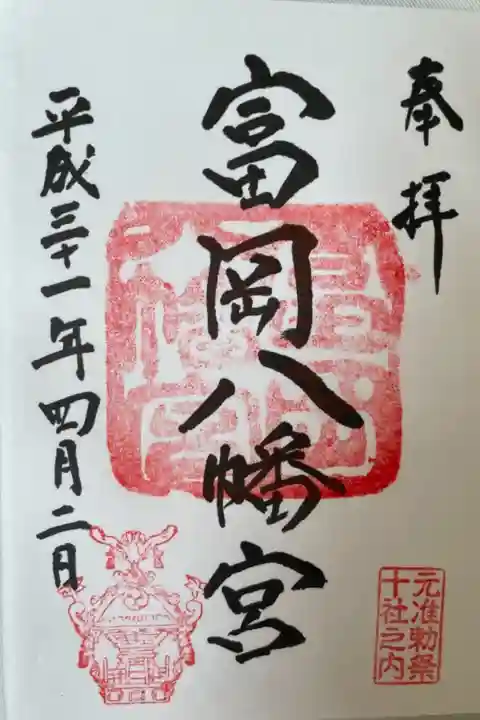 奉拝
富岡八幡宮
元准勅祭
十社之内
平成三十一年四月二日